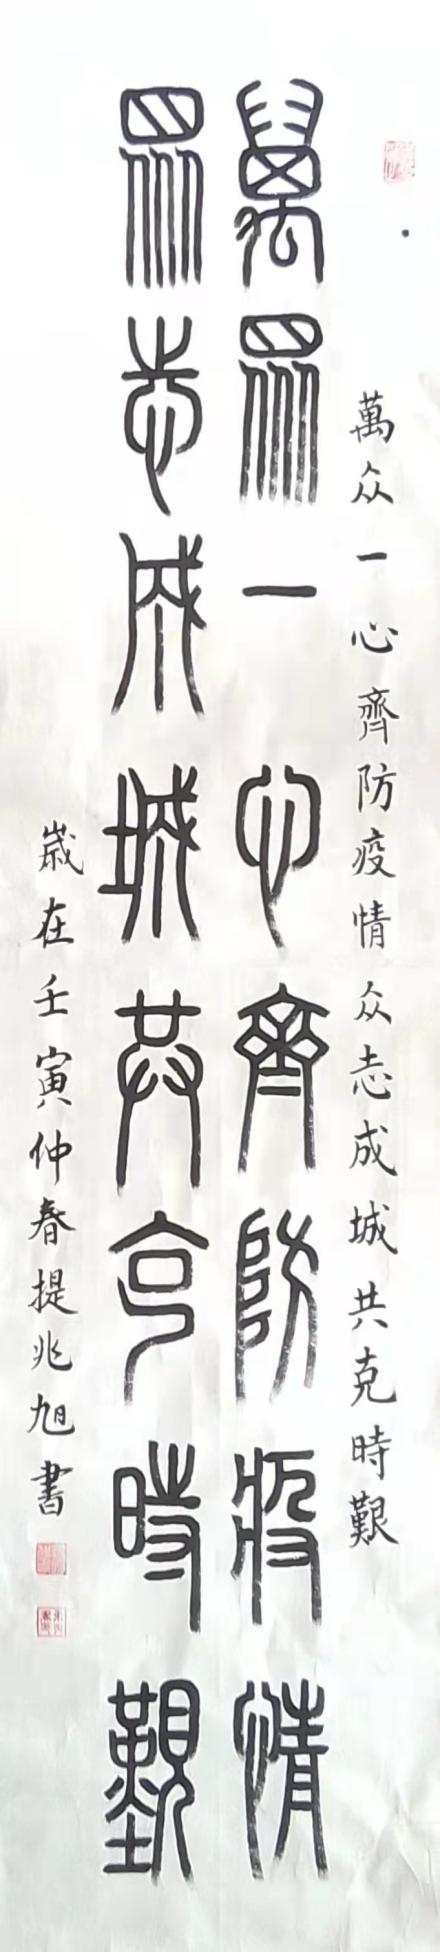 萬众一心齊防疫情众志成城共克時艱
萬眾一心齊防疫情
眾志成城共克時艱
歳在壬寅仲春提兆旭書